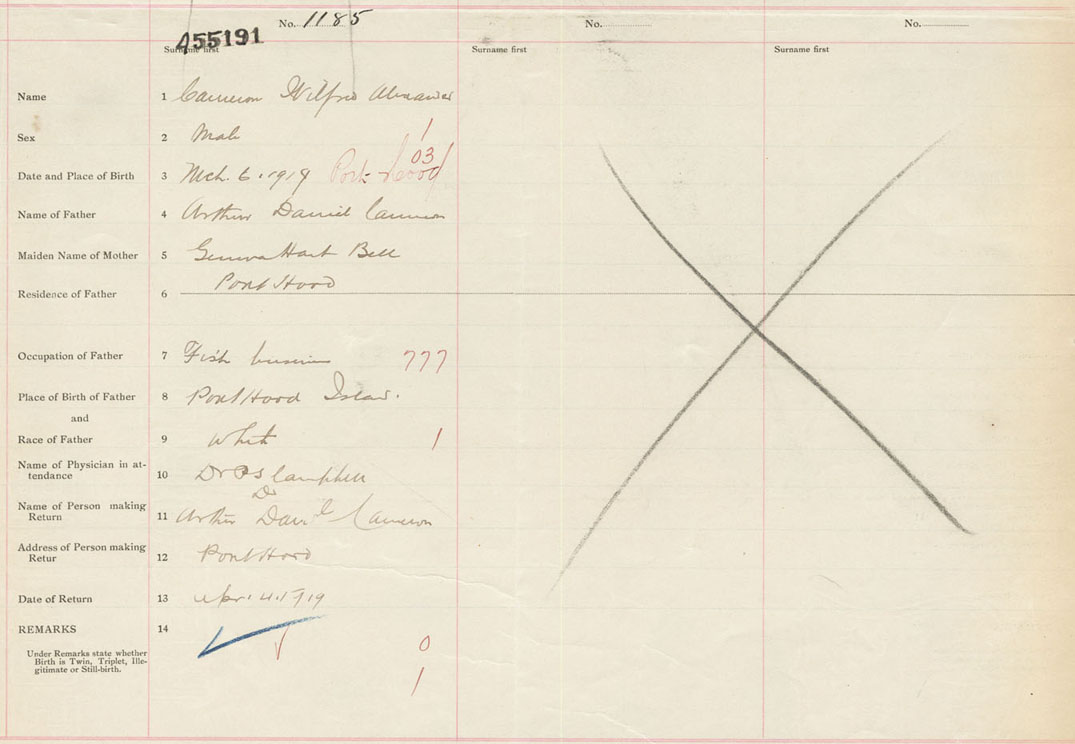 No. 1185 No. No.
455191
Surname first Surname first Surname first
Name 1 Cameron Wilfred Alexander
Sex 2 Male 1
03
Date and Place of Birth 3 Mch. 6. 1919 Port Hood
Name of Father 4 Arthur Daniel Cameron
Maiden Name of Mother 5 Geneva Hart Bell
Port Hood
Residence of Father 6
Occupation of Father 7 Fish business 777
Place of Birth of Father 8 Port Hood Island.
and
Race of Father 9 White 1
Name of Physician in at-
tendance 10 Dr Campbell
Name of Person making
Return 11 Arthur Daniel Cameron
Address of Person making
Retur 12 Port Hood
Date of Return 13 Apr. 4. 1919
REMARKS 14
Under Remarks state whether
Birth is Twin, Triplet, Ille-
gitimate or Still-birth.
0
1